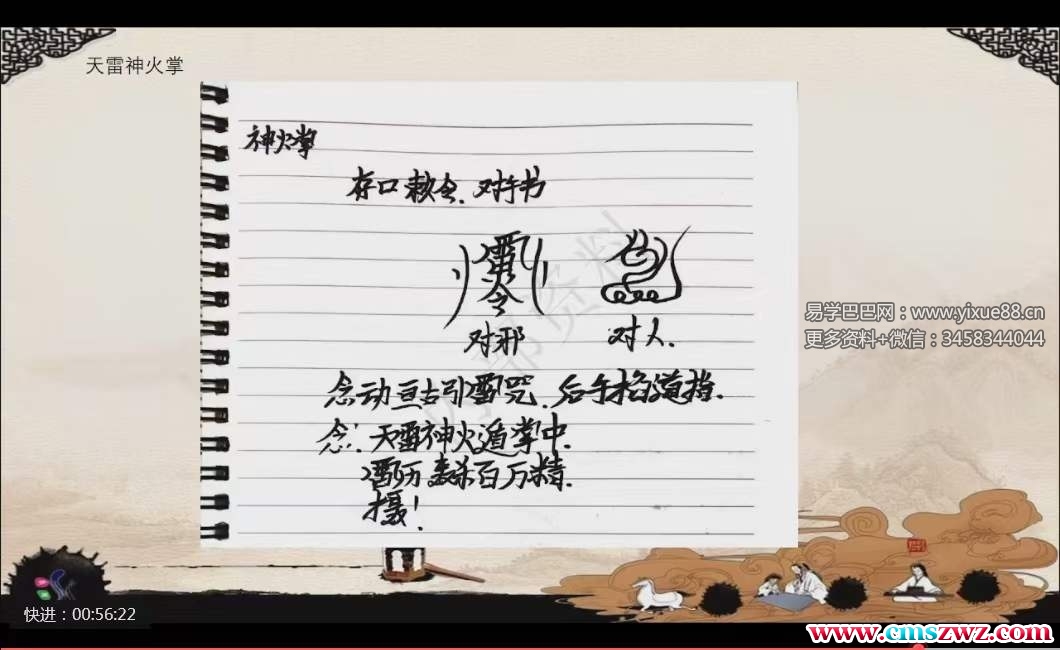 天雷神火掌
神火掌
存口敕令.对手书
雷令
对邪 对人.
念动亘古引雷咒.后手掐道指.
念:天雷神火遁掌中.
轰杀百万精.
摄!
内部资料
易学巴巴网：www.yixue88.cn
更多资料+微信：3458344044
快进：00:56:22
www.cmszwz.com